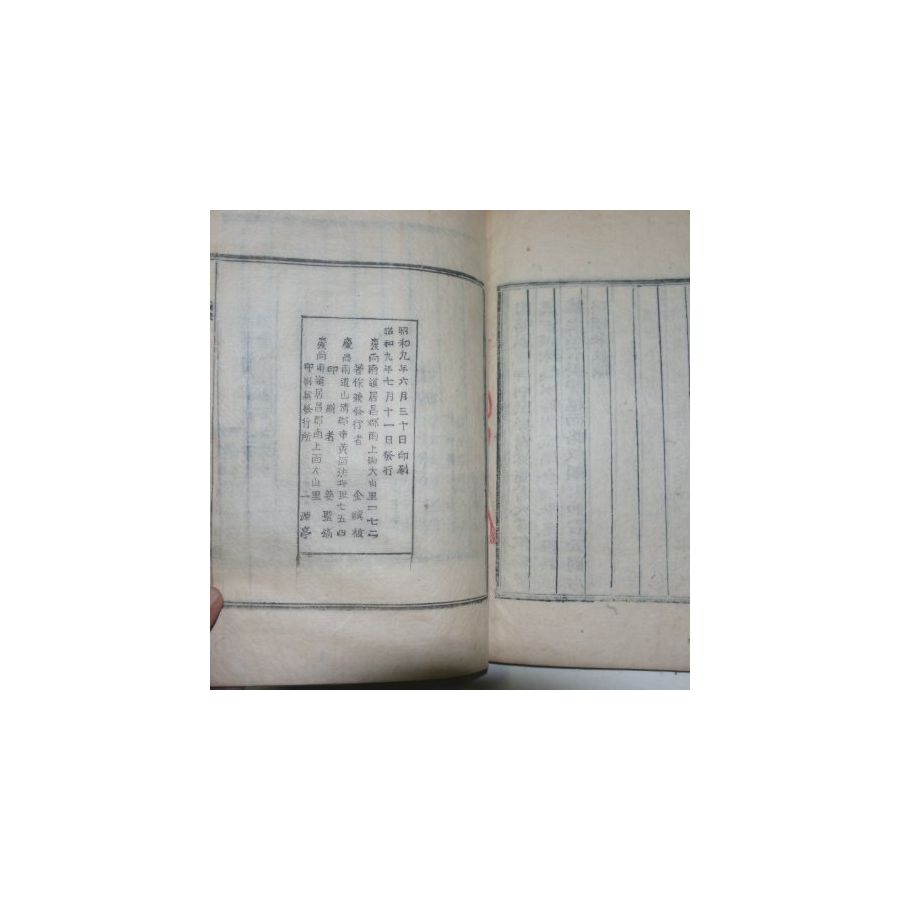 昭和九年六月三十日印刷
昭和九年七月十一日發行
慶尚南道居昌郡南上面大山里一七二
著作兼發行者 金 植
慶尚南道山淸郡 黃面法 里七五四
印刷者 姜聖
慶尚南道居昌郡南上面大山里
印刷兼發行所 一源亭